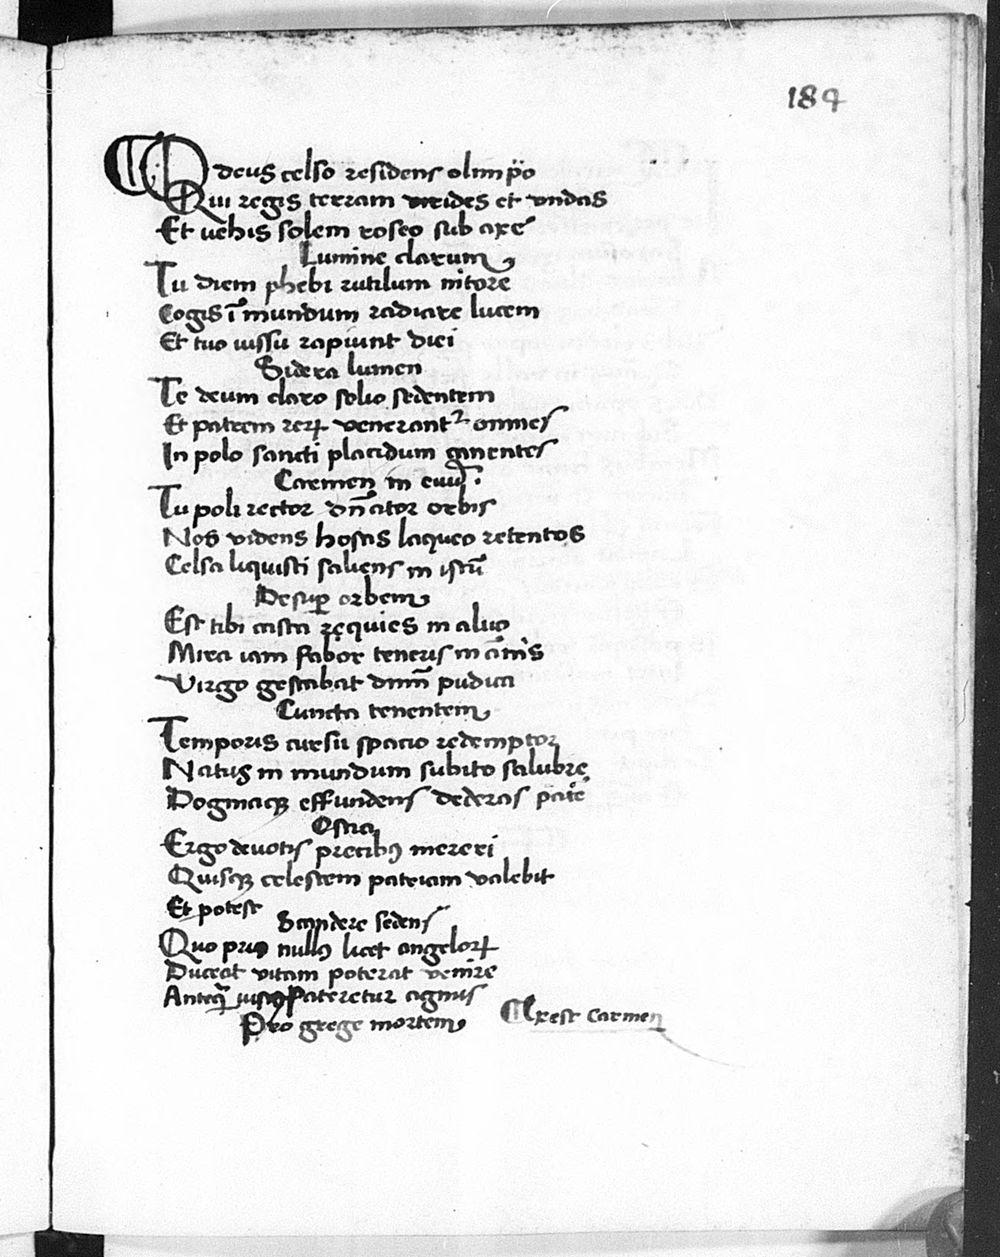 184
O deus celso residens olimpo
Qui regis terram virides et vndas
Et vehis solem roseo sub axe
Lumine clarum
Tu diem phebi rutilum nitore
Cogis ī mundum radiare lucem
Et tuo iussu rapiunt diei
Sidera lumen
Te deum claro solio sedentem
Et patrem reꝝ venerantᷣ omnes
In polo sancti placidum canentes
Carmen in euū.
Tu poli rector dn̄ator orbis
Nos videns hostis laqueo retentos
Celsa liquisti saliens in istū
Desuꝑ orbem
Est tibi casta requies in aluo
Mira iam fabor teneris in ānis
Virgo gestabat dnm̄ pudica
Cuncta tenentem
Temporis cursu spacio redemptor
Natus in mundum subito salubre
Dogmaqꝫ effundens dederas
Ostia
Ergo deuotis precibꝰ mereri
Quisqꝫ celestem patriam valebit
Et potest
Scandere sedens
Quo priꝰ nullꝰ licet angeloꝝ
Duceat vitam poterat venire
Anteq̄ pateretur agnus
Pro grege mortem
Explicit Carmen